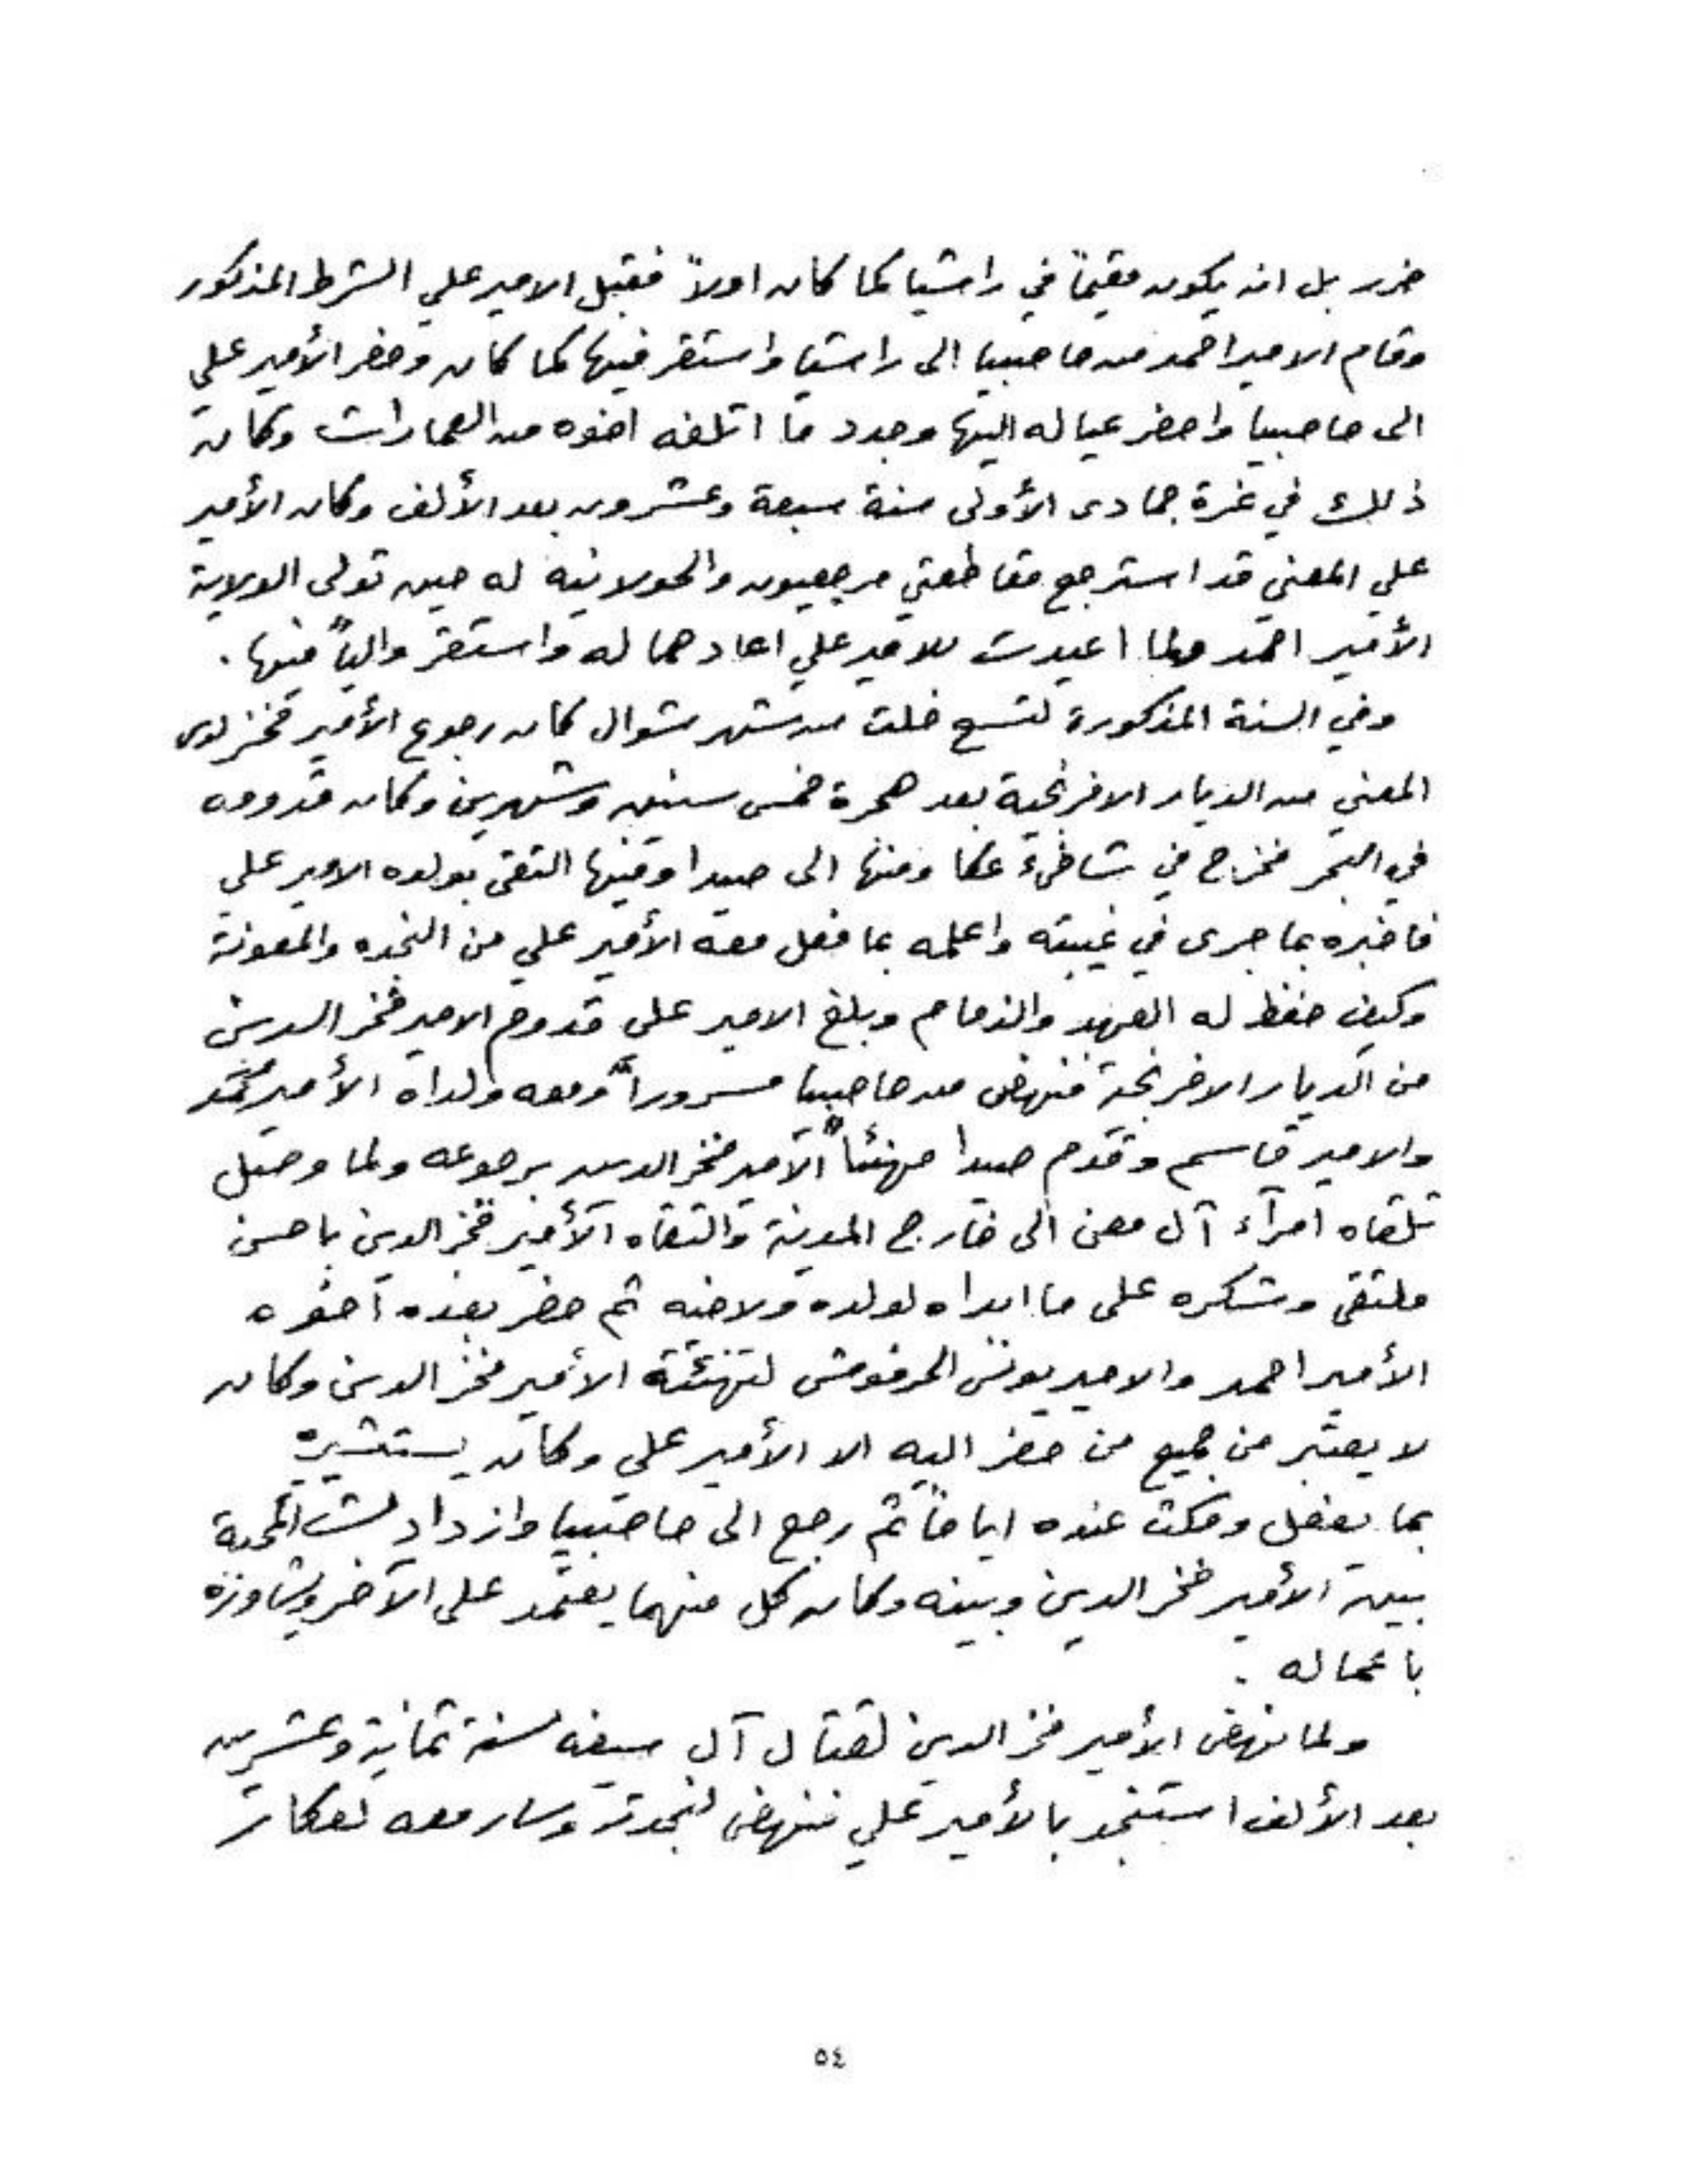 ضرر بل انه يكون مقيماً في راشيا كما كان اولاً فقبل الامير علي الشرط المذكور
وقام الامير احمد من حاصبيا الى راشيا واستقر فيها كما كان وحضر الأمير علي
الى حاصبيا واحضر عياله اليها وجدد ما اتلفه اخوه من العمارات وكان
ذلك في غرة جمادى الأولى سنة سبعة وعشرون بعد الألف وكان الأمير
علي المعني قد استرجع مقاطعتي مرجعيون والحولانيه له حين تولى الولاية
الأمير احمد ولما اعيدت للامير علي اعادهما له واستقر والياً فيها .
وفي السنة المذكورة لتسع خلت من شهر شوال كان رجوع الأمير فخر الدين
المعني من الديار الافرنجية بعد هجرة خمس سنين وشهرين وكان قدومه
في البحر فخرج في شاطىء عكا ومنها الى صيدا وفيها التقى بولده الامير علي
فاخبره بما جرى في غيبته واعلمه بما فعل معه الأمير علي من النجده والمعونة
وكيف حفظ له العهد والذمام وبلغ الامير على قدوم الامير فخر الدين
من الديار الافرنجية فنهض من حاصبيا مسروراً ومعه ولداه الأمير محمد
والامير قاسم وقدم صيدا مهنئاً الأمير فخر الدين برجوعه ولما وصل
تلقاه امرآء آل معن الى خارج المدينة والتقاه الأمير فخر الدين باحسن
ملتقى وشكره على ما ابداه لولده ولاخيه ثم حضر بعده اخوه
الأمير احمد والامير يونس الحرفوش لتهنئة الأمير فخر الدين وكان
لا يعتبر من جميع من حضر اليه الا الأمير علي وكان يستشيره
بما يفعل ومكث عنده اياماً ثم رجع الى حاصبيا وازدادت المحبة
بين الأمير فخر الدين وبينه وكان كل منهما يعتمد على الآخر ويشاوره
باعماله .
ولما نهض الأمير فخر الدين لقتال آل سيفه سنة ثمانية وعشرين
بعد الألف استنجد بالأمير علي فنهض لنجدته وسار معه لعكار
٥٤